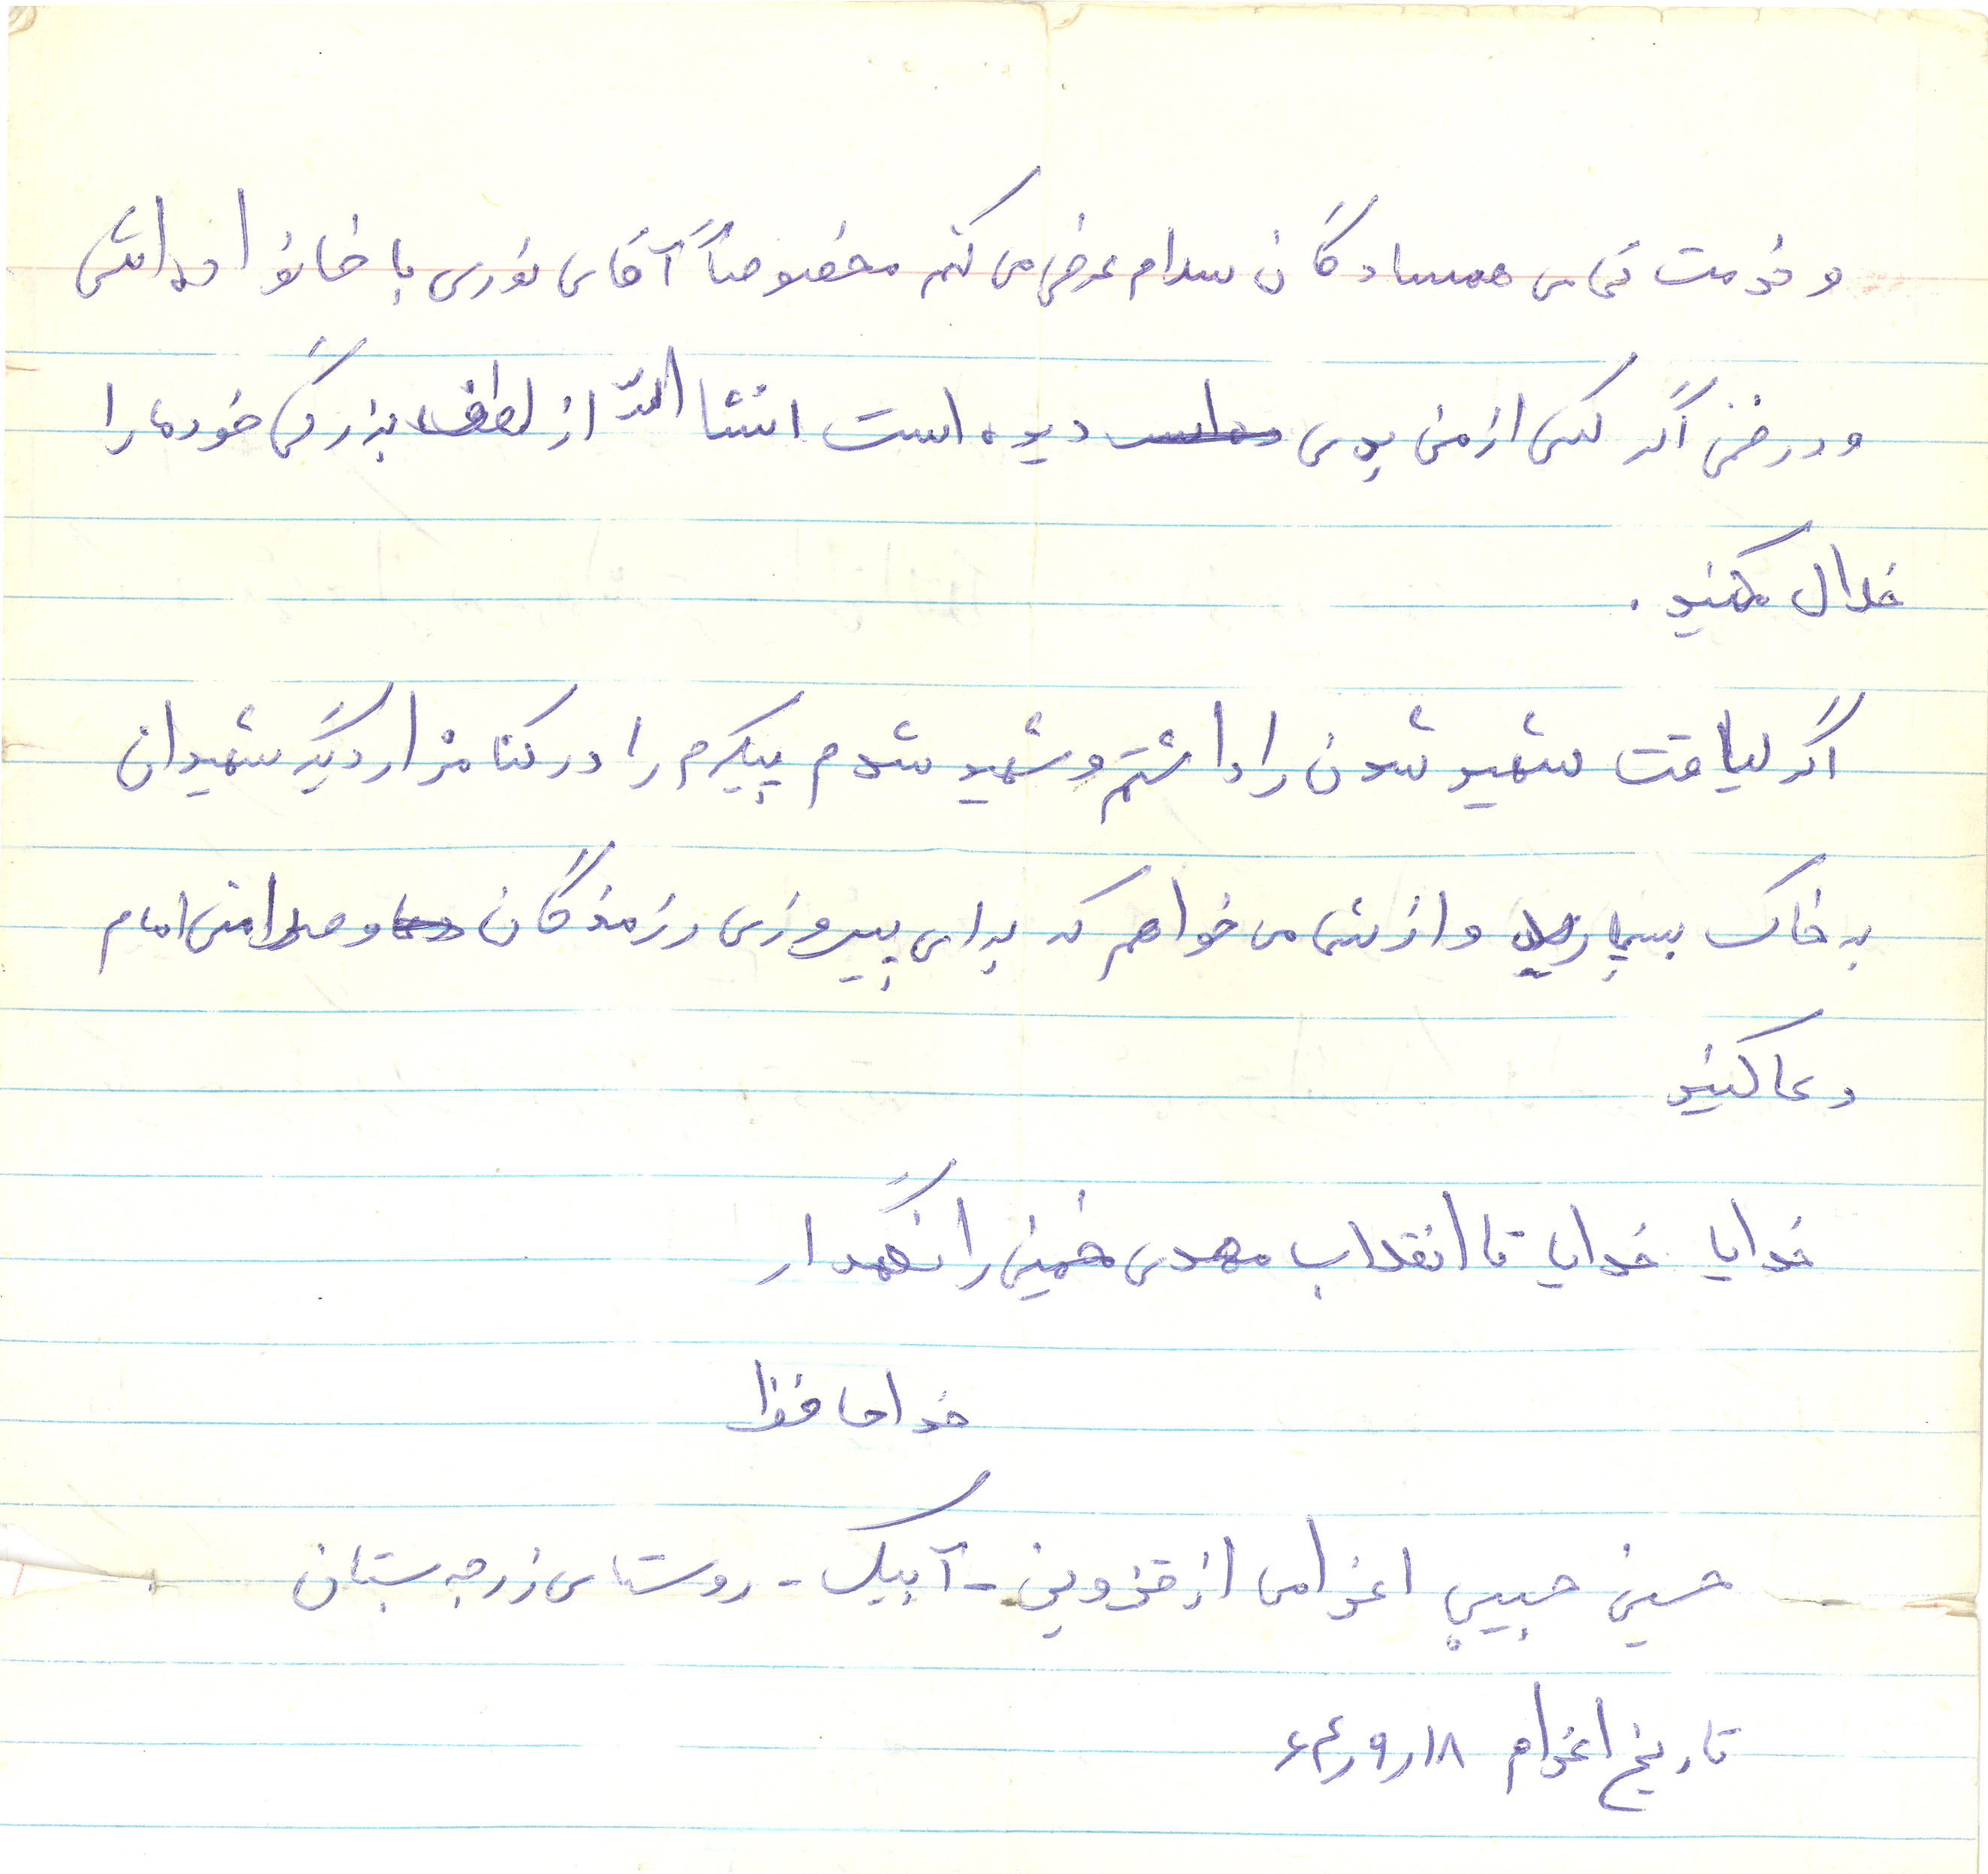 و خدمت تمامی همسادگان سلام عرض می کنم مخصوصاً آقای نوری با خانواده اش
و در ضمن اگر کسی از من بدی دیده است انشا الله از لطف بزرگی خود ما را
حلال کنید .
اگر لیاقت شهید شدن را داشتم و شهید شدم پیکرم را در کنا مزار دیگر شهیدان
به خاک بسپارید و از شما می خواهم که برای پیروزی رزمندگان و سلامتی امام
دعا کنید
خدایا خدایا تا انقلاب مهدی خمینی را نگهدار
خداحافظ
حسین حبیبی اعزامی از قزوین - آبیک - روستای زرجه بستان
تاریخ اعزام ۱۸ر۹ر۶۴